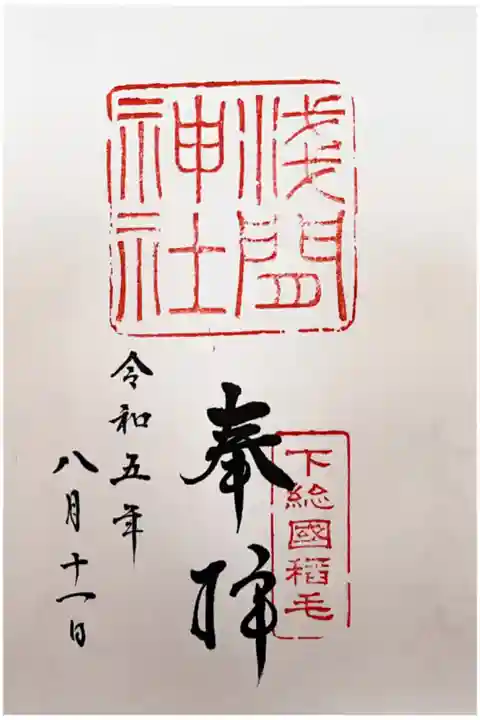 淺間
神社
下総國稻毛
奉拝
令和五年
八月十一日